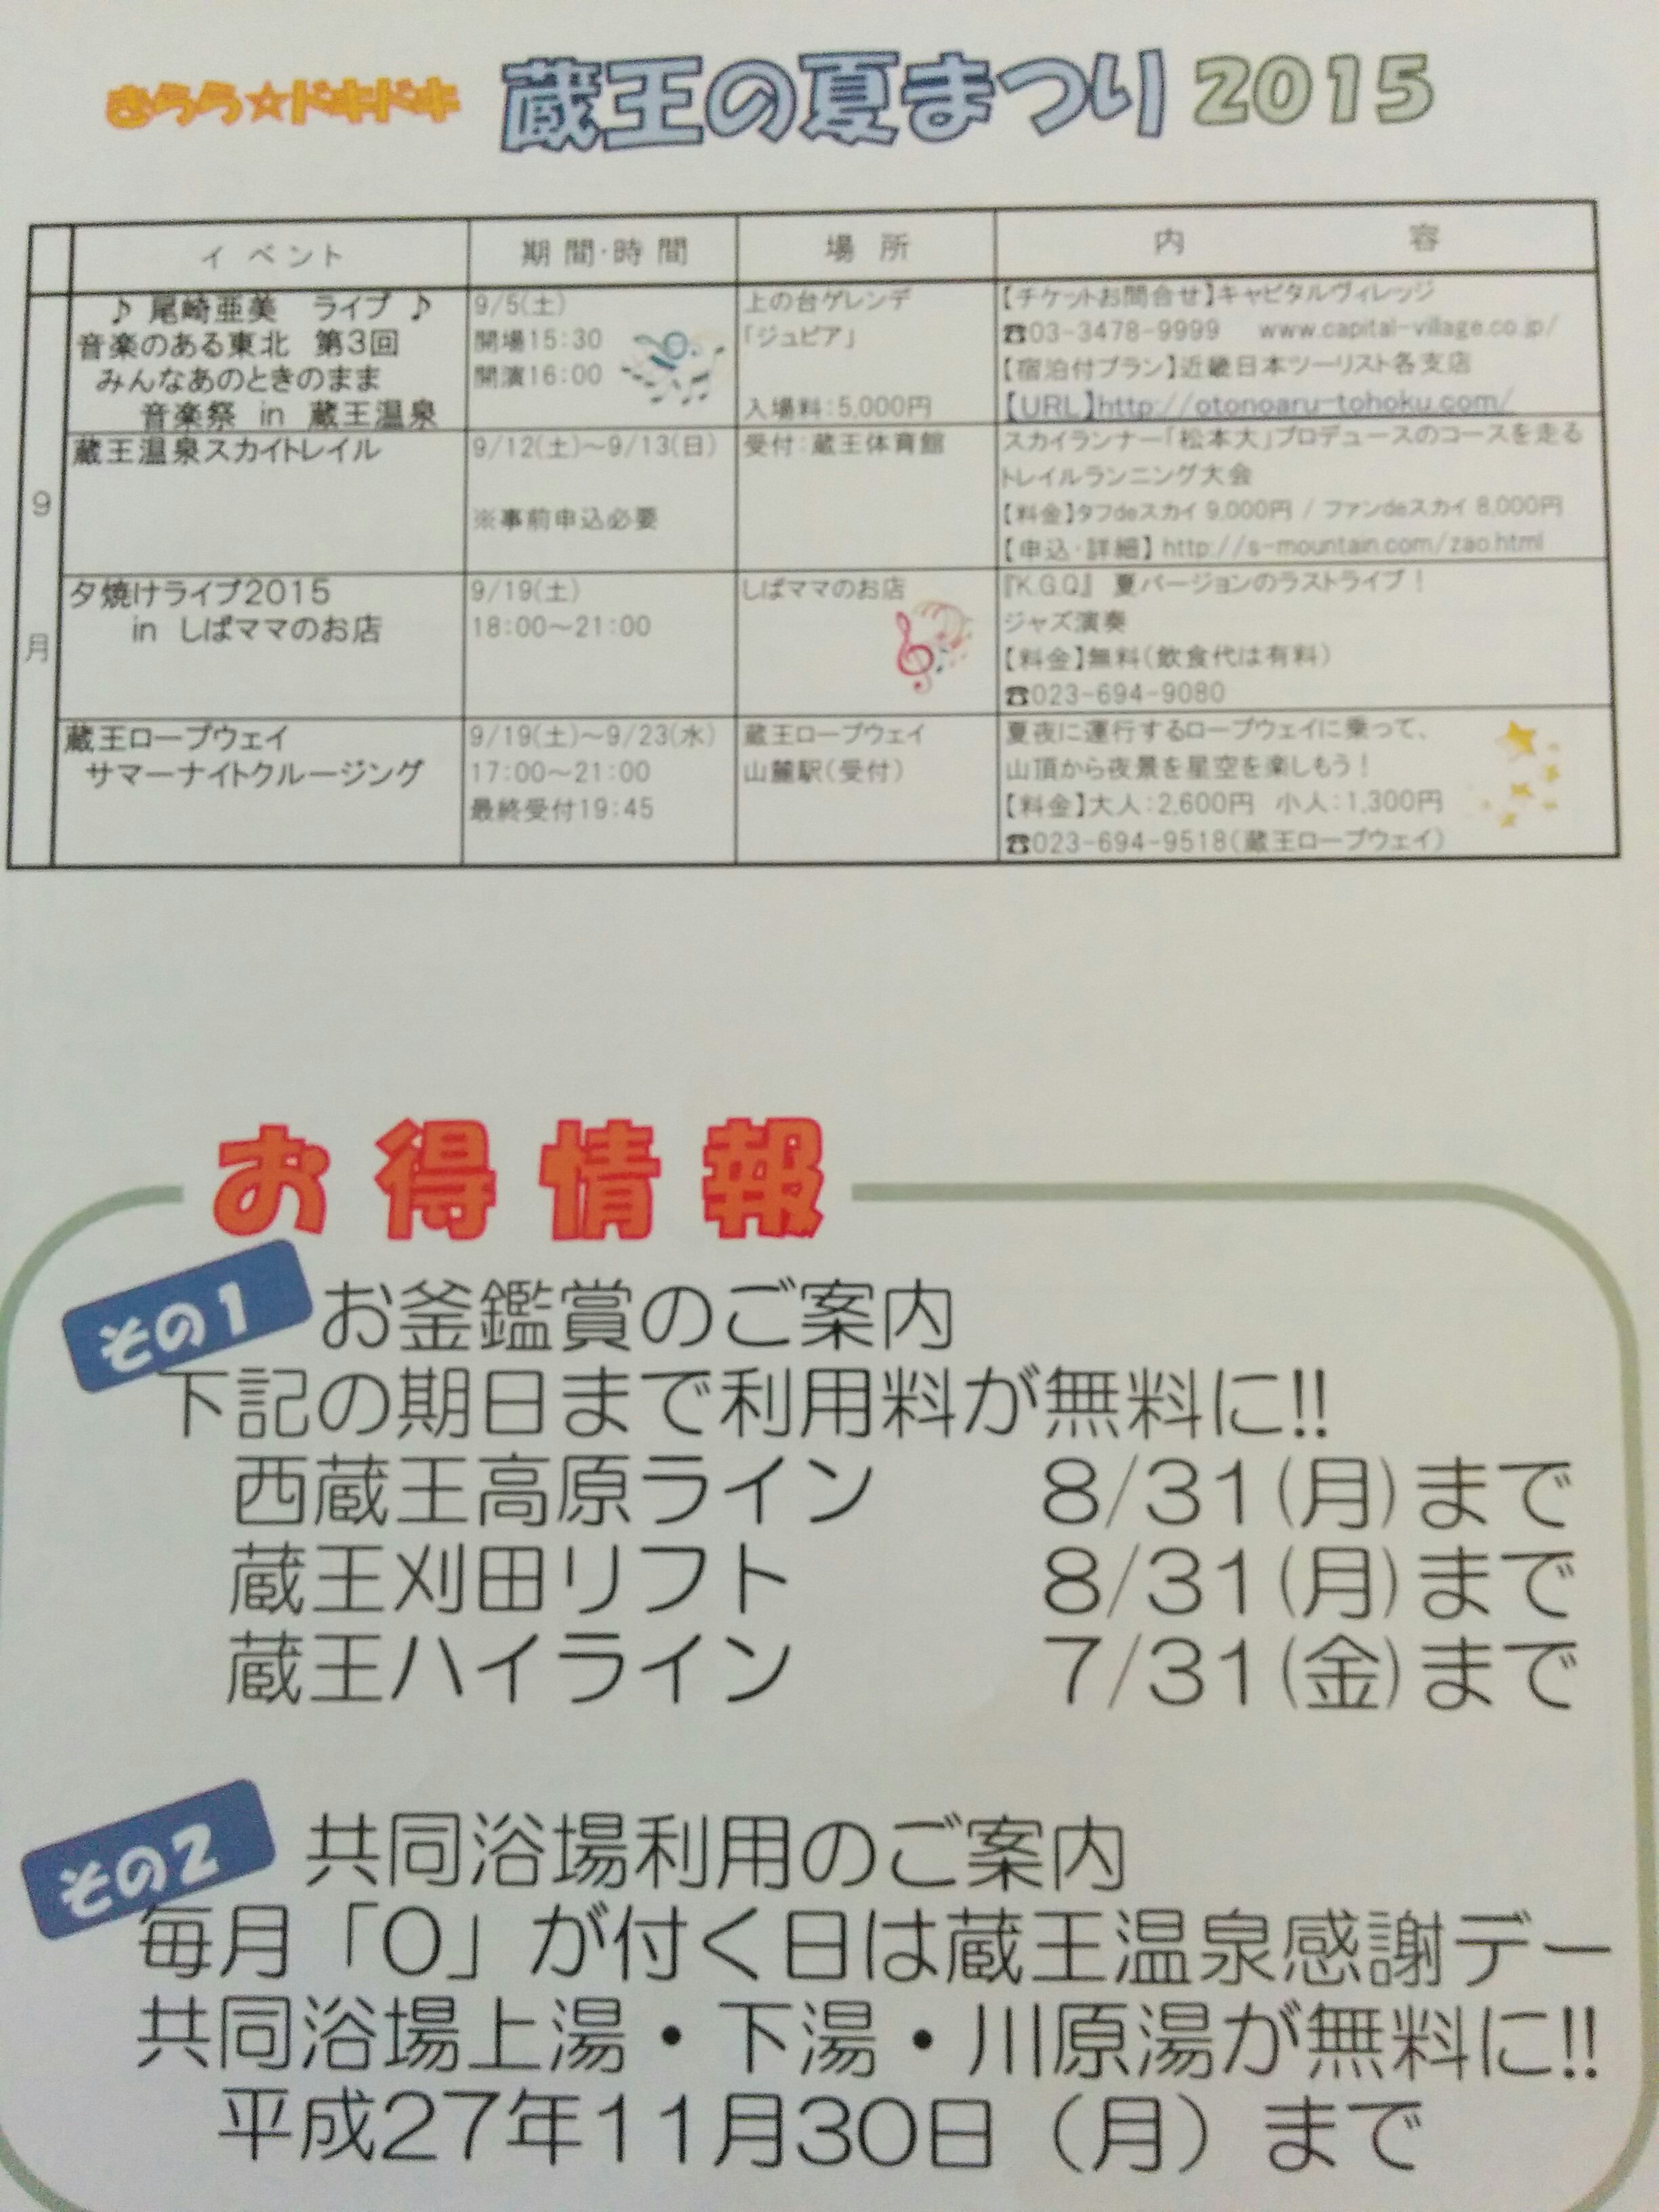 きらら☆ドキドキ 蔵王の夏まつり 2015
イベント 期間・時間 場所 内容
9月
♪ 尾崎亜美 ライブ ♪
音楽のある東北 第3回
みんなあのときのまま
音楽祭 in 蔵王温泉
9/5(土)
開場15:30
開演16:00
上の台ゲレンデ
「ジュピア」
入場料:5,000円
【チケットお問合せ】キャピタルヴィレッジ
☎03-3478-9999 www.capital-village.co.jp/
【宿泊付プラン】近畿日本ツーリスト各支店
【URL】http://otonoaru-tohoku.com/
蔵王温泉スカイトレイル
9/12(土)～9/13(日)
※事前申込必要
受付:蔵王体育館
スカイランナー「松本大」プロデュースのコースを走る
トレイルランニング大会
【料金】タフdeスカイ 9,000円 / ファンdeスカイ 8,000円
【申込・詳細】http://s-mountain.com/zao.html
夕焼けライブ2015
in しばママのお店
9/19(土)
18:00～21:00
しばママのお店
『K.G.Q』 夏バージョンのラストライブ!
ジャズ演奏
【料金】無料(飲食代は有料)
☎023-694-9080
蔵王ロープウェイ
サマーナイトクルージング
9/19(土)～9/23(水)
17:00～21:00
最終受付19:45
蔵王ロープウェイ
山麓駅(受付)
夏夜に運行するロープウェイに乗って、
山頂から夜景を星空を楽しもう!
【料金】大人:2,600円 小人:1,300円
☎023-694-9518(蔵王ロープウェイ)
お得情報
その1 お釜鑑賞のご案内
下記の期日まで利用料が無料に!!
西蔵王高原ライン 8/31(月)まで
蔵王刈田リフト 8/31(月)まで
蔵王ハイライン 7/31(金)まで
その2 共同浴場利用のご案内
毎月「0」が付く日は蔵王温泉感謝デー
共同浴場上湯・下湯・川原湯が無料に!!
平成27年11月30日(月)まで